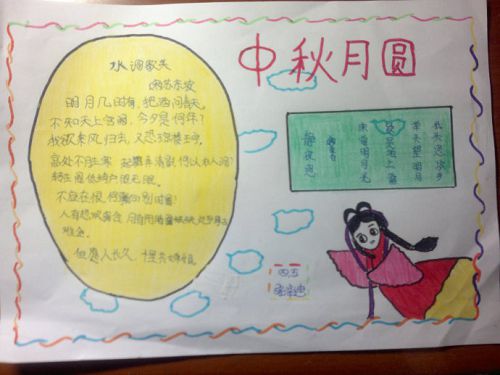 中秋月圆
水调歌头
苏东坡
明月几时有,把酒问青天。
不知天上宫阙,今夕是何年?
我欲乘风归去,又恐琼楼玉宇,
高处不胜寒 起舞弄清影 何似在人间
转 低绮户 照无眠。
不应有恨 何 别时圆
人有悲欢离合 月有阴晴圆缺
难全。
但愿人长久
静夜思
李白
床前明月光
疑是地上霜
举头望明月
低头思故乡
四五